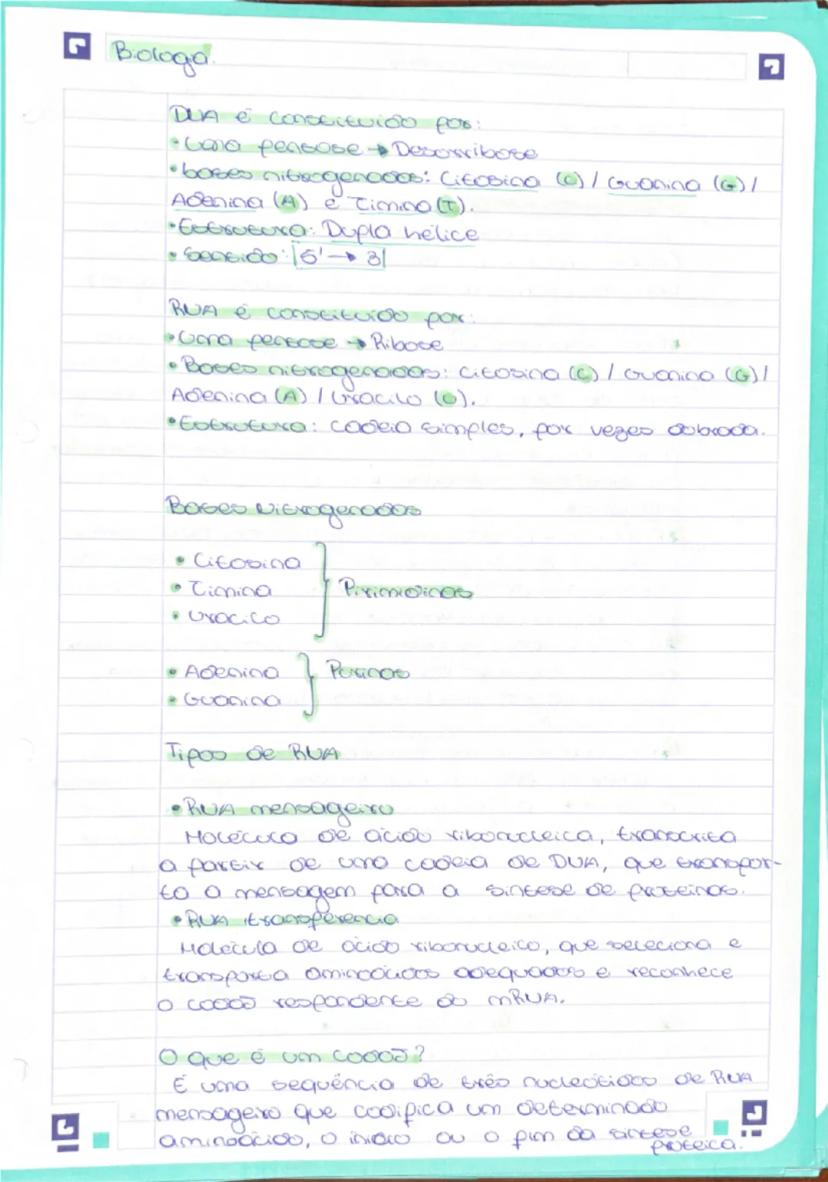 Biologa.
DNA é constituído por:
• Uma pentose → Desoxirribose
• bases nitrogenadas: Citosina (C) / Guanina (G) /
Adenina (A) e Timina (T).
• Estrutura: Dupla hélice
• Sentido: 5' → 3'
RNA é constituído por:
• Uma pentose → Ribose
• Bases nitrogenadas: citosina (C) / Guanina (G) /
Adenina (A) / Uracilo (U).
• Estrutura: cadeia simples, por vezes dobrada.
Bases Nitrogenadas
• Citosina
• Timina
• Uracilo
Pirimidinas
• Adenina
• Guanina
Purinas
Tipos de RNA
• RNA mensageiro
Molécula de ácido ribonucleico, transcrita
a partir de uma cadeia de DNA, que transpor-
ta a mensagem para a síntese de proteínas.
• RNA transferência
Molécula de ácido ribonucleico, que seleciona e
transporta aminoácidos adequados e reconhece
o codão respondente do mRNA.
O que é um codão?
É uma sequência de três nucleótidos de RNA
mensageiro que codifica um determinado
aminoácido, o início ou o fim da síntese
proteica.